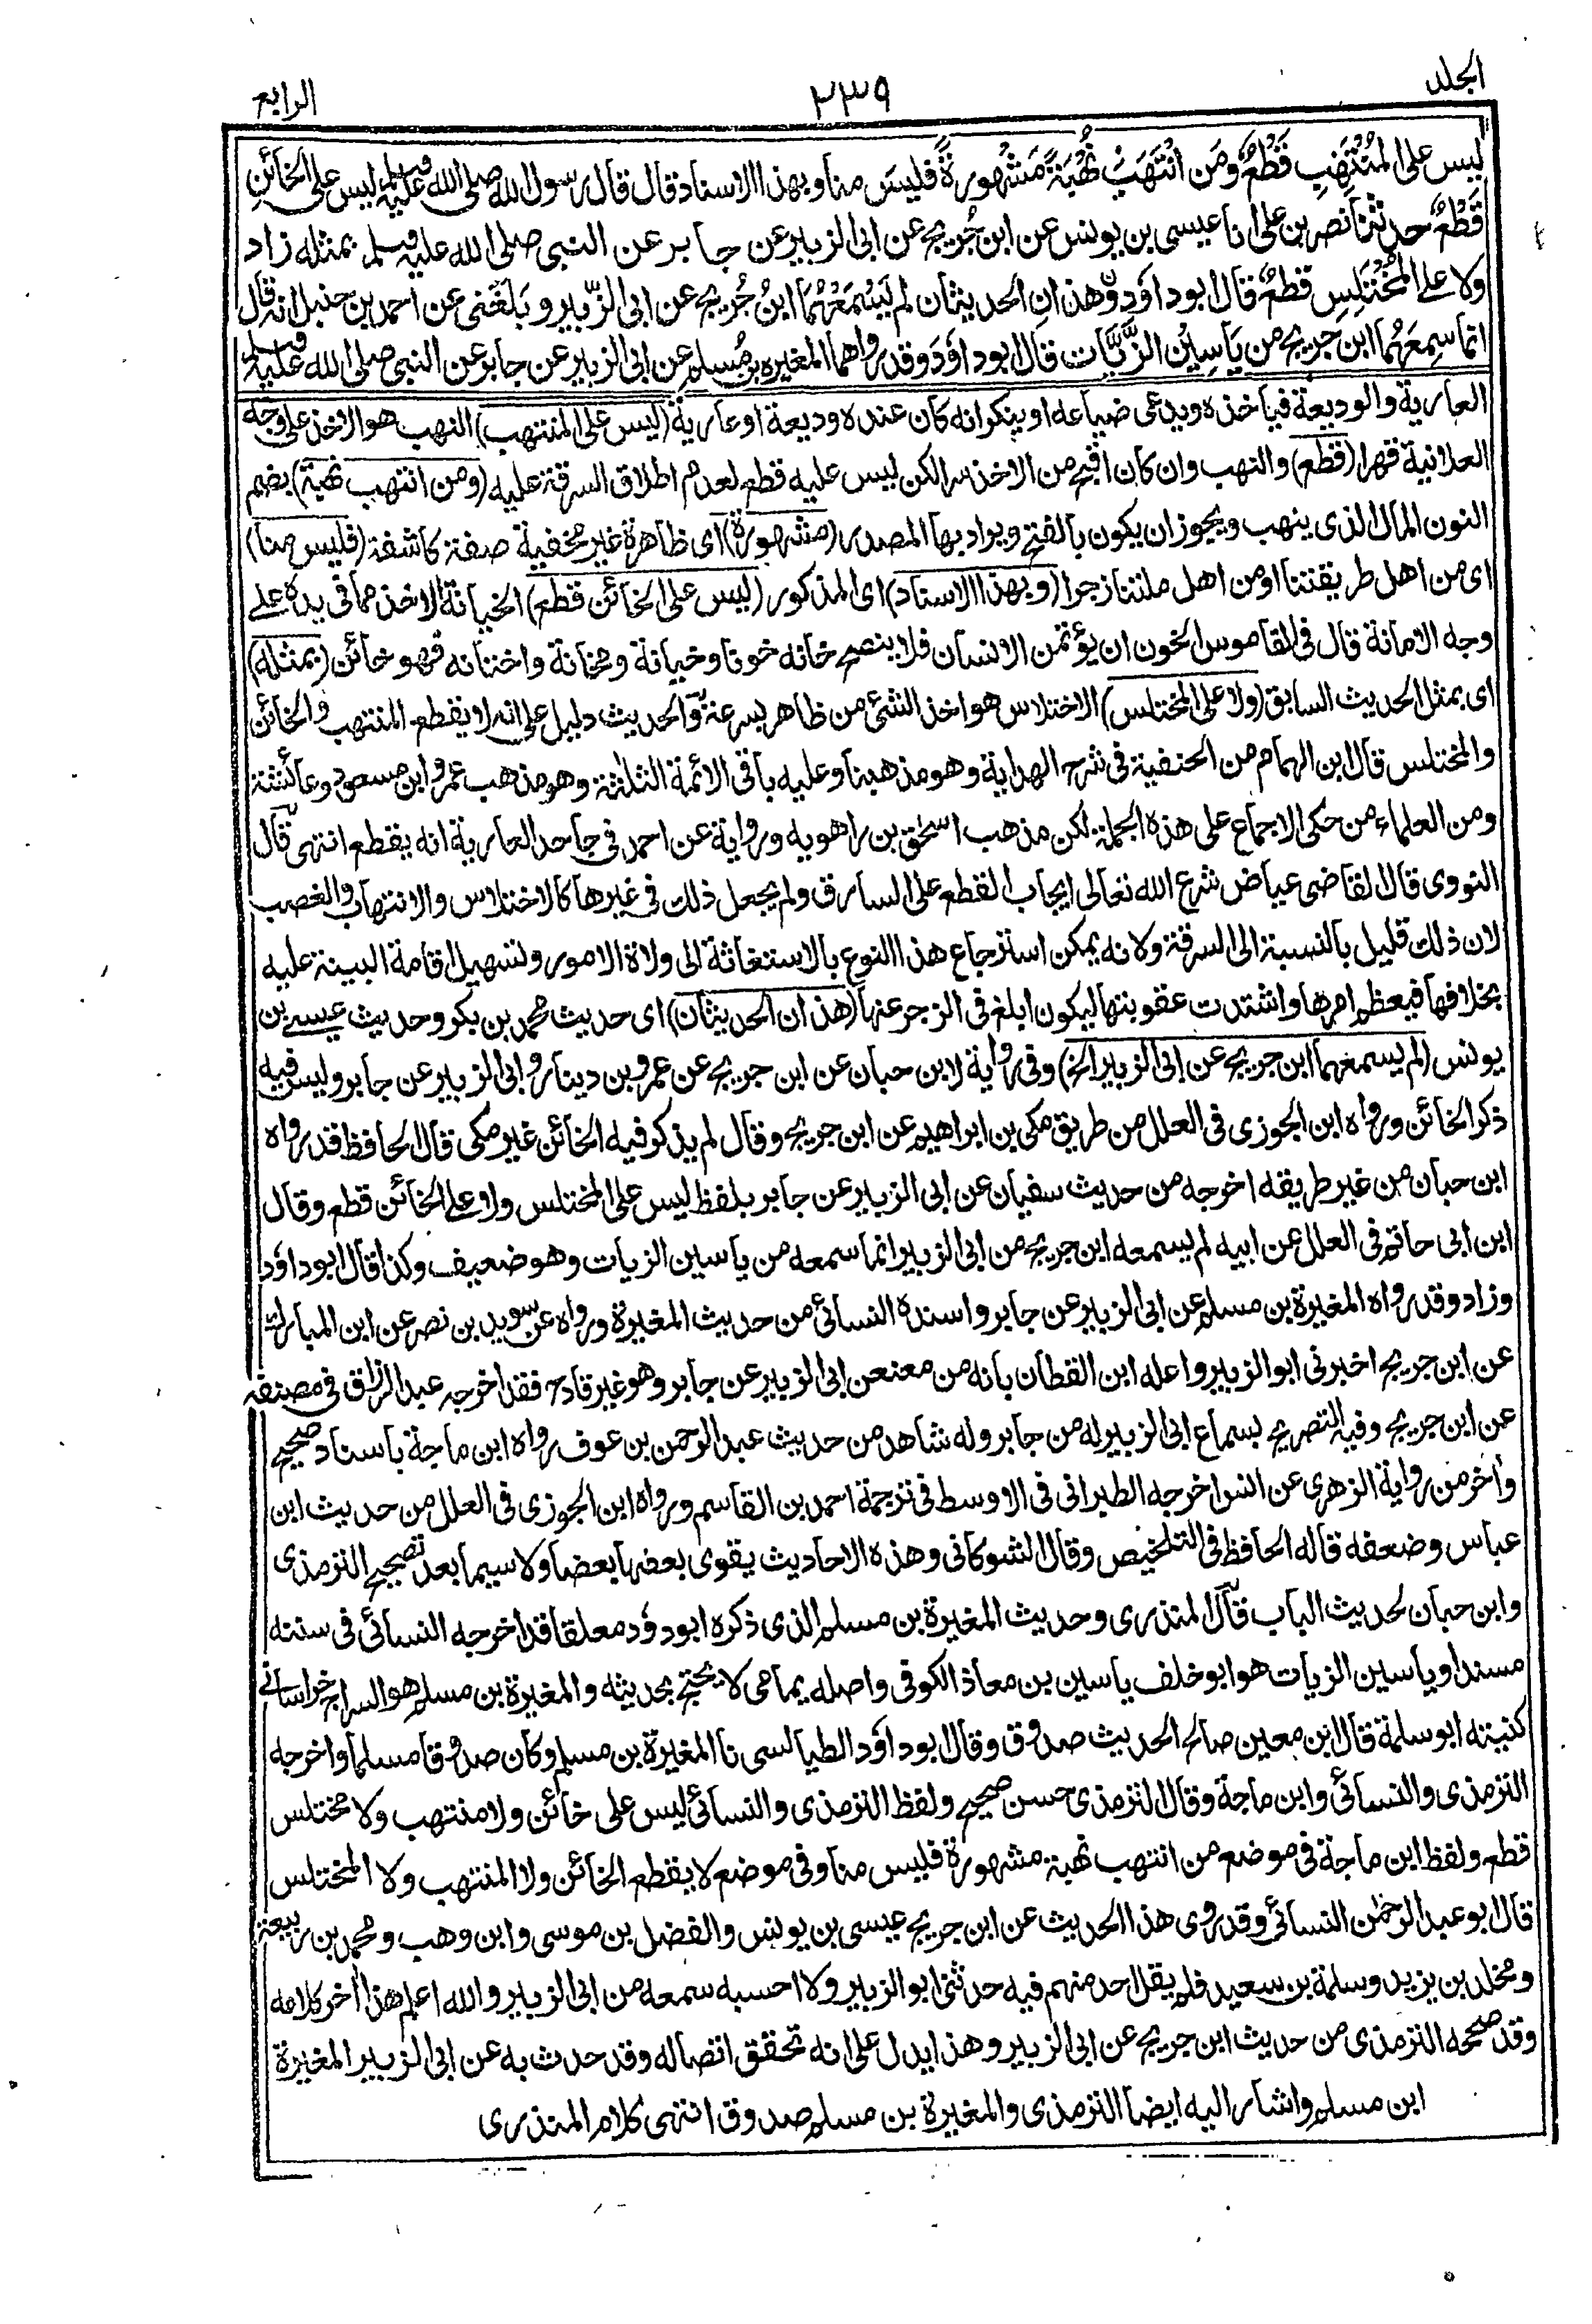 الجلد
٢٣٩
الرابع
ليس على المُنْتَهِبِ قَطْعٌ ومَن انْتَهَبَ نُهْبَةً مَشْهُورةً فليسَ منا وبهذا الاسناد قال قال رسول الله صلى الله عليه وسلم ليس على الخائنِ
قَطْعٌ حدثنا نصر بن على انا عيسى بن يونس عن ابن جُريج عن ابى الزبير عن جابر عن النبى صلى الله عليه وسلم بمثله زاد
ولا على المُخْتَلِسِ قطعٌ قال ابوداؤد وهذانِ الحديثان لم يَسْمَعْهُمَا ابنُ جُريج عن ابى الزّبير وبَلَغَنى عن احمد بن حنبل انه قال
انما سِمِعَهُما ابن جريج من يَاسِيْن الزَّيَّات قال ابوداؤد وقد رواهما المغيرة بن مُسلم عن ابى الزبير عن جابر عن النبى صلى الله عليه وسلم
العارية والوديعة فياخذه ويدعى ضياعه او ينكر انه كان عنده وديعة او عارية (ليس على المنتهب) النهب هو الاخذ على وجه
العلانية قهرا (قطع) والنهب وان كان اقبح من الاخذ سرا لكن ليس عليه قطع لعدم اطلاق السرقة عليه (ومن انتهب نهبة) بضم
النون المال الذى ينهب ويجوز ان يكون بالفتح ويراد بها المصدر (مشهورة) اى ظاهرة غير مخفية صفة كاشفة (فليس منا)
اى من اهل طريقتنا او من اهل ملتنا زجرا (وبهذا الاسناد) اى المذكور (ليس على الخائن قطع) الخيانة الاخذ مما فى يده على
وجه الامانة قال فى القاموس الخون ان يؤتمن الانسان فلا ينصح خانه خونا وخيانة ومخانة واختانه فهو خائن (بمثله)
اى بمثل الحديث السابق (ولا على المختلس) الاختلاس هو اخذ الشئ من ظاهر بسرعة والحديث دليل على انه لا يقطع المنتهب والخائن
والمختلس قال ابن الهمام من الحنفية فى شرح الهداية وهو مذهبنا وعليه باقى الائمة الثلثة وهو مذهب عمر وابن مسعود وعائشة
ومن العلماء من حكى الاجماع على هذه الجملة لكن مذهب اسحٰق بن راهويه ورواية عن احمد فى جاحد العارية انه يقطع انتهى قال
النووى قال القاضى عياض شرع الله تعالى ايجاب القطع على السارق ولم يجعل ذلك فى غيرها كالاختلاس والانتهاب والغصب
لان ذلك قليل بالنسبة الى السرقة ولانه يمكن استرجاع هذا النوع بالاستغاثة الى ولاة الامور وتسهيل اقامة البينة عليه
بخلافها فيعظم امرها واشتدت عقوبتها ليكون ابلغ فى الزجر عنها (هذان الحديثان) اى حديث محمد بن بكر وحديث عيسى بن
يونس (لم يسمعهما ابن جريج عن ابى الزبير الخ) وفى رواية لابن حبان عن ابن جريج عن عمرو بن دينار وابى الزبير عن جابر وليس فيه
ذكر الخائن ورواه ابن الجوزى فى العلل من طريق مكى بن ابراهيم عن ابن جريج وقال لم يذكر فيه الخائن غير مكى قال الحافظ قد رواه
ابن حبان من غير طريقه اخرجه من حديث سفيان عن ابى الزبير عن جابر بلفظ ليس على المختلس ولا على الخائن قطع وقال
ابن ابى حاتم فى العلل عن ابيه لم يسمعه ابن جريج من ابى الزبير انما سمعه من ياسين الزيات وهو ضعيف وكذا قال ابوداؤد
وزاد وقد رواه المغيرة بن مسلم عن ابى الزبير عن جابر واسنده النسائى من حديث المغيرة ورواه عن سويد بن نصر عن ابن المبارك
عن ابن جريج اخبرنى ابو الزبير واعله ابن القطان بانه من معنعن ابى الزبير عن جابر وهو غير قادح فقد اخرجه عبد الرزاق فى مصنفه
عن ابن جريج وفيه التصريح بسماع ابى الزبير له من جابر وله شاهد من حديث عبد الرحمن بن عوف رواه ابن ماجة باسناد صحيح
وأخر من رواية الزهرى عن انس اخرجه الطبرانى فى الاوسط فى ترجمة احمد بن القاسم ورواه ابن الجوزى فى العلل من حديث ابن
عباس وضعفه قاله الحافظ فى التلخيص وقال الشوكانى وهذه الاحاديث يقوى بعضها بعضا ولا سيما بعد تصحيح الترمذى
وابن حبان لحديث الباب قال المنذرى وحديث المغيرة بن مسلم الذى ذكره ابودؤد معلقا قد اخرجه النسائى فى سننه
مسندا وياسين الزيات هو ابو خلف ياسين بن معاذ الكوفى واصله يمامى لا يحتج بحديثه والمغيرة بن مسلم هو السراج خراسانى
كنيته ابو سلمة قال ابن معين صالح الحديث صدوق وقال ابوداؤد الطيالسى نا المغيرة بن مسلم وكان صدوقا مسلما واخرجه
الترمذى والنسائى وابن ماجة وقال الترمذى حسن صحيح ولفظ الترمذى والنسائى ليس على خائن ولا منتهب ولا مختلس
قطع ولفظ ابن ماجة فى موضع من انتهب نهبة مشهورة فليس منا وفى موضع لا يقطع الخائن ولا المنتهب ولا المختلس
قال ابو عبد الرحمٰن النسائى وقد روى هذا الحديث عن ابن جريج عيسى بن يونس والفضل بن موسى وابن وهب ومحمد بن ربيعة
ومخلد بن يزيد وسلمة بن سعيد فلم يقل احد منهم فيه حدثنى ابو الزبير ولا احسبه سمعه من ابى الزبير والله اعلم هذا أخر كلامه
وقد صححه الترمذى من حديث ابن جريج عن ابى الزبير وهذا يدل على انه تحقق اتصاله وقد حدث به عن ابى الزبير المغيرة
ابن مسلم واشار اليه ايضا الترمذى والمغيرة بن مسلم صدوق انتهى كلام المنذرى